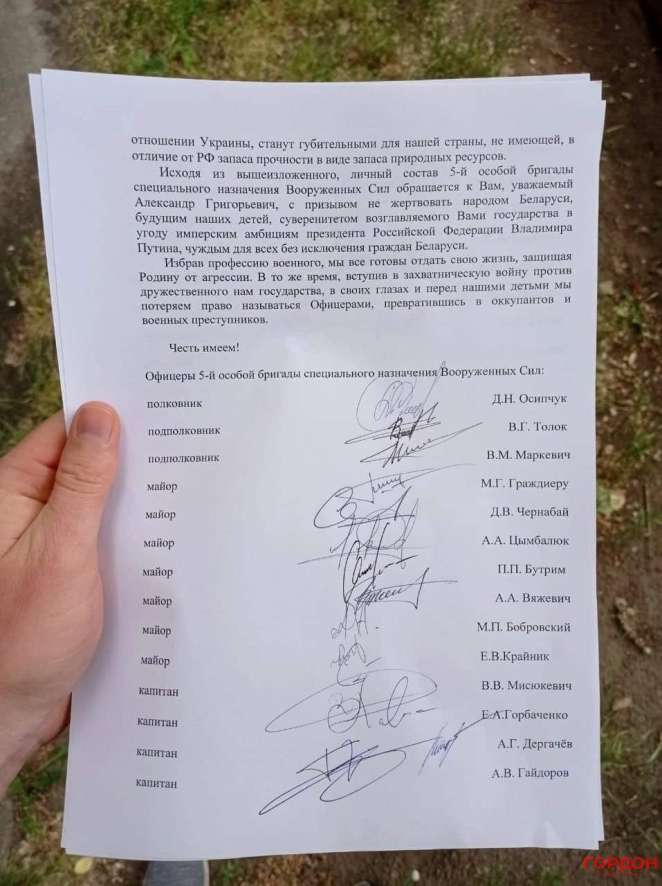 отношении Украины, станут губительными для нашей страны, не имеющей, в
отличие от РФ запаса прочности в виде запаса природных ресурсов.
Исходя из вышеизложенного, личный состав 5-й особой бригады
специального назначения Вооруженных Сил обращается к Вам, уважаемый
Александр Григорьевич, с призывом не жертвовать народом Беларуси,
будущим наших детей, суверенитетом возглавляемого Вами государства в
угоду имперским амбициям президента Российской Федерации Владимира
Путина, чуждым для всех без исключения граждан Беларуси.
Избрав профессию военного, мы все готовы отдать свою жизнь, защищая
Родину от агрессии. В то же время, вступив в захватническую войну против
дружественного нам государства, в своих глазах и перед нашими детьми мы
потеряем право называться Офицерами, превратившись в оккупантов и
военных преступников.
Честь имеем!
Офицеры 5-й особой бригады специального назначения Вооруженных Сил:
полковник Д.Н. Осипчук
подполковник В.Г. Толок
подполковник В.М. Маркевич
майор М.Г. Граждиеру
майор Д.В. Чернабай
майор А.А. Цымбалюк
майор П.П. Бутрим
майор А.А. Вяжевич
майор М.П. Бобровский
майор Е.В.Крайник
капитан В.В. Мисюкевич
капитан Е.А.Горбаченко
капитан А.Г. Дергачёв
капитан А.В. Гайдоров
ГОРДОН